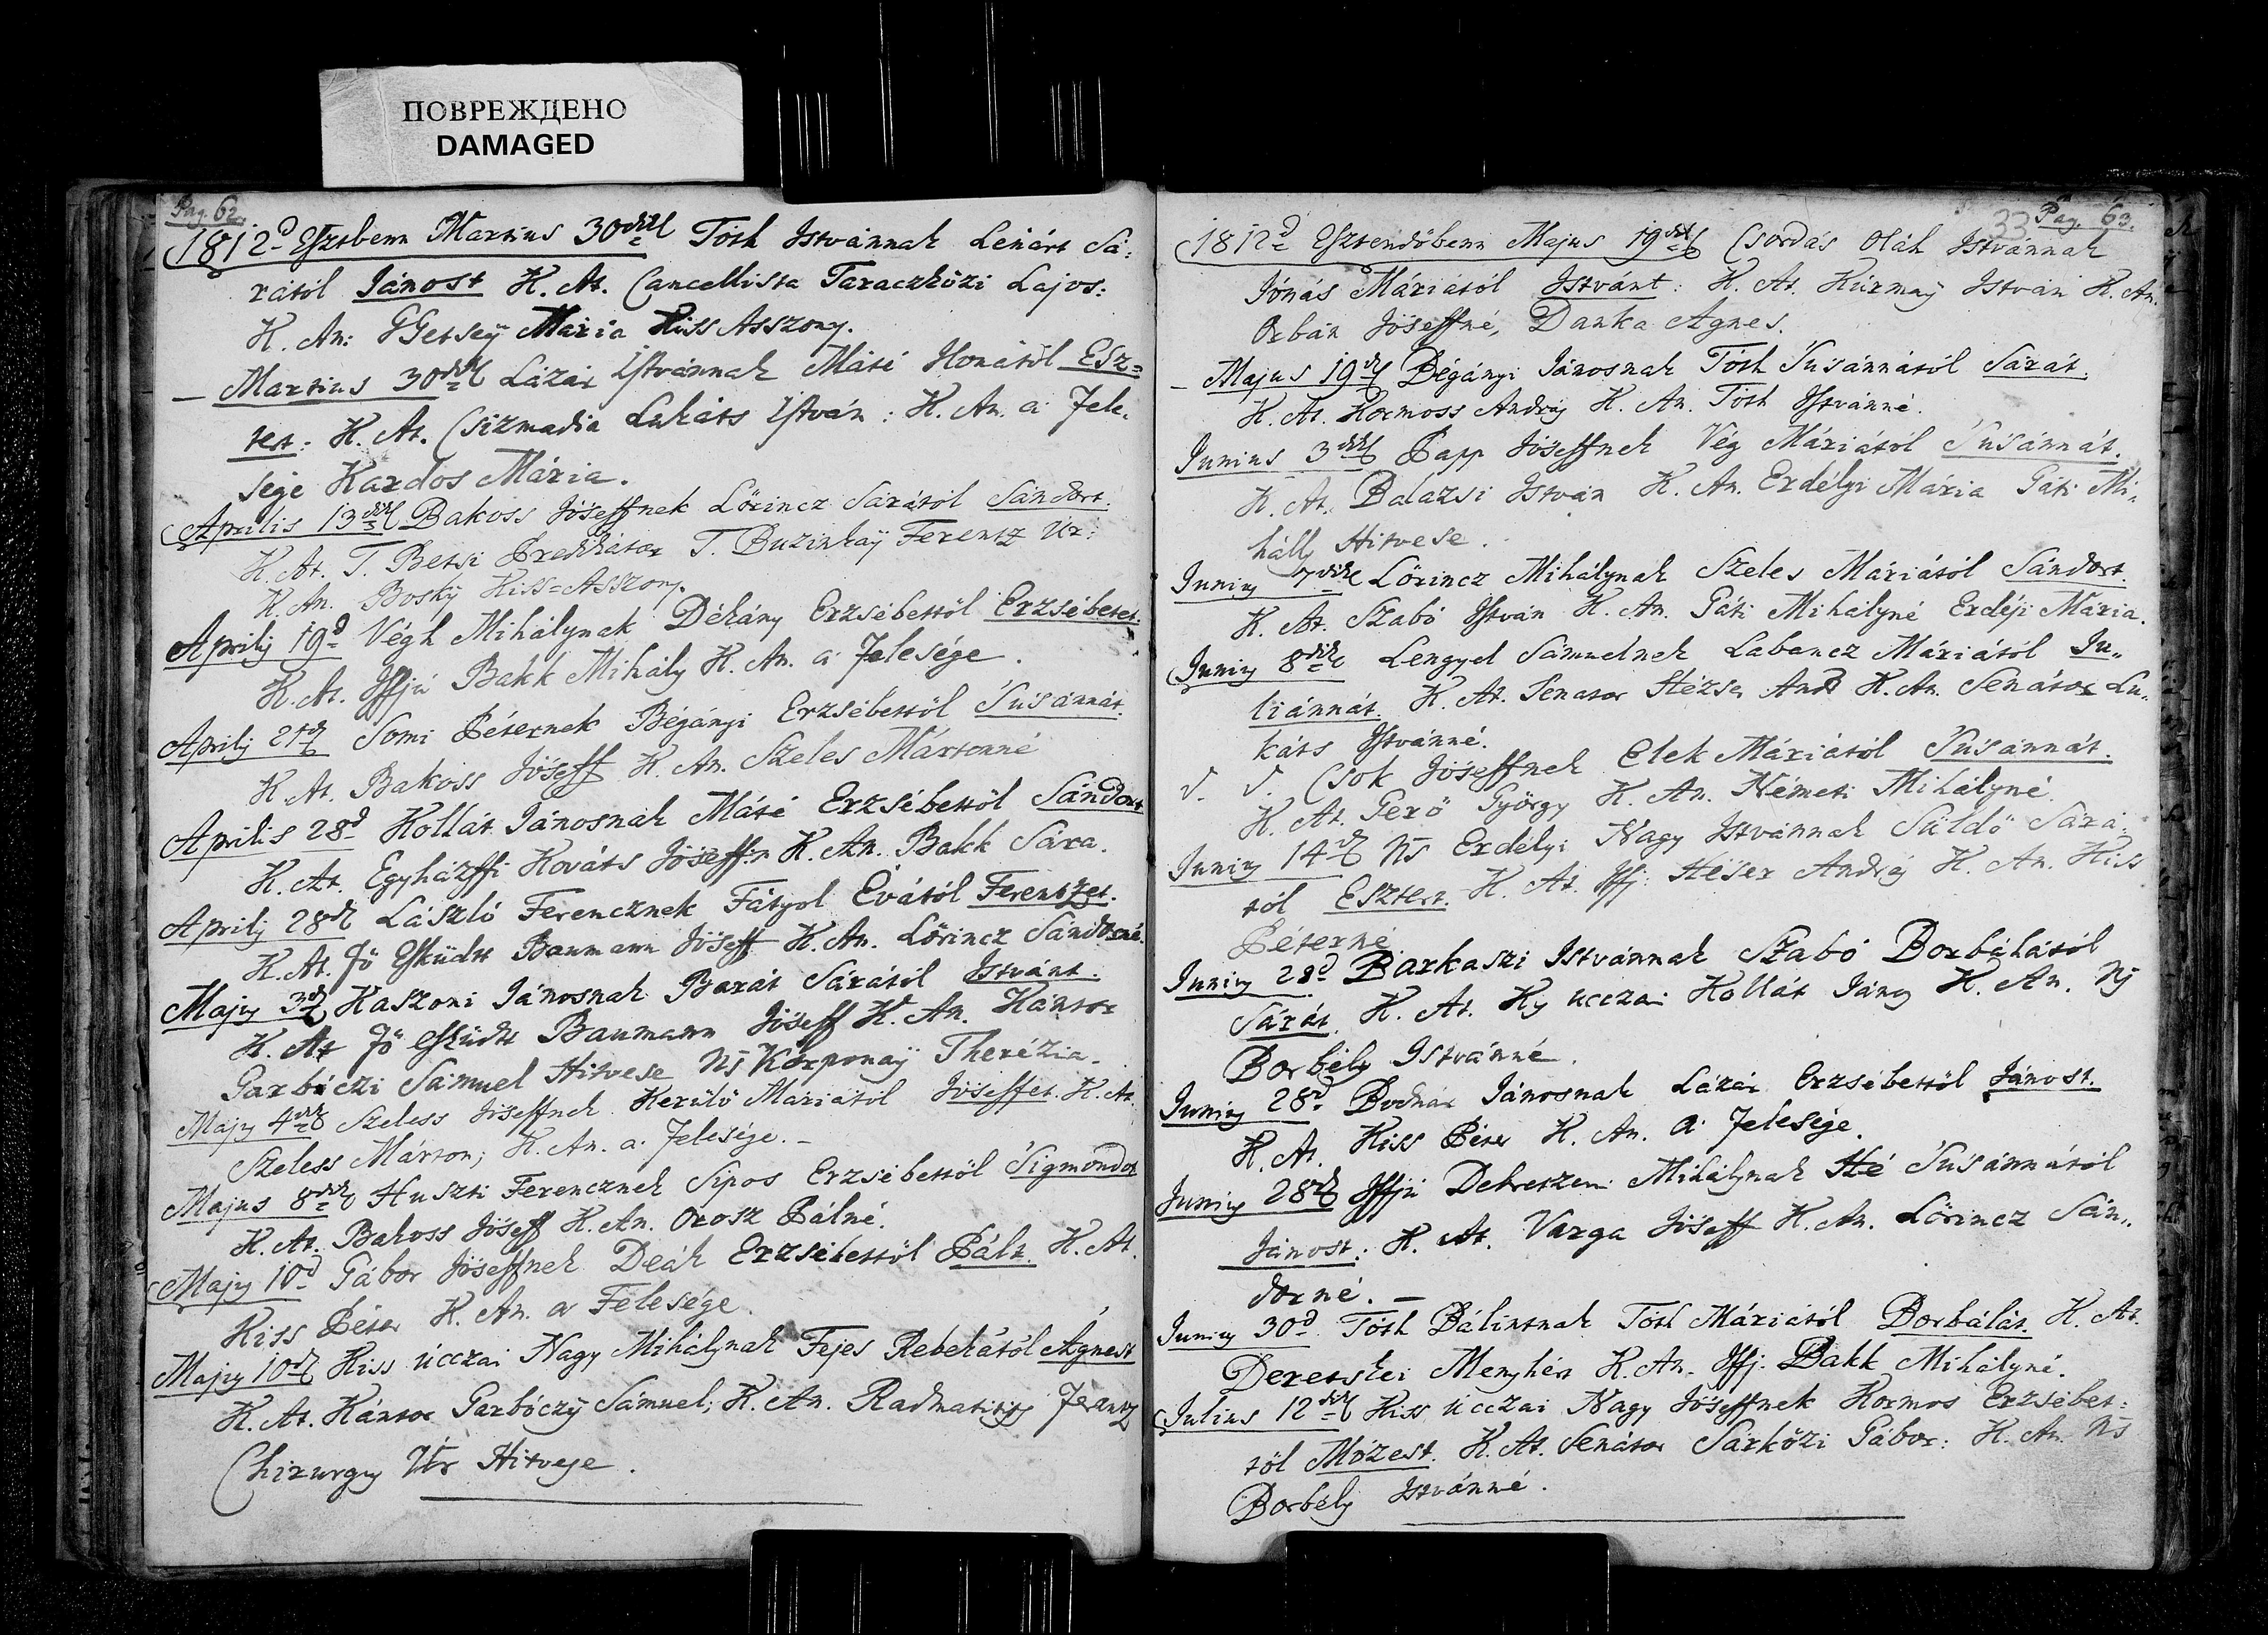 ПОВРЕЖДЕНО
DAMAGED
Pag. 62.
1812d Esztbenn Martius 30dik Tóth Istvánnak Lénárt Sá:
rától Jánost K. At. Cancellista Taraczközi Lajos:
K. An: Getsey Mária Kiss Asszony.
– Martius 30dik Lázár Istvánnak Máté Ilonától Esz=
tert: K. At. Csizmadia Lukáts István: K. An. a Fele-
sége Kardos Mária.
Aprilis 13dik Bakoss Jóseffnek Lőrincz Sárától Sándort.
K. At. T. Betsi Predikátor T. Buzinkaÿ Ferentz Úr:
K. An. Boskÿ Kiss=Asszony.
Aprilis 19d Végh Mihálynak Dékány Ersébettöl Erzsébetet.
K. At. Iffjú Bakk Mihály K. An. a Felesége.
Aprilis 21dik Somi Péternek Bégányi Erzsébettöl Susánnát.
K At. Bakoss Jóseff K. An. Szeles Mártonné
Aprilis 28d Kollát Jánosnak Máté Erzsébettöl Sándort
K. At. Egyházffi Kováts Jóseff K. An. Bakk Sára.
Aprilis 28dik László Ferencznek Fátyol Évától Ferentzet.
K. At. Fö Esküdtt Baumann Jóseff K. An. Lőrincz Sándorné.
Majus 3dik Kaszoni Jánosnak Barát Sárától Istvánt.
K. At Fö Esküdtt Baumann Jóseff K. An. Kántor
Garbóczi Sámuel Hitvese Ns Korponaÿ Therézia.
Majus 4dik Szeless Jóseffnek Kerülö Máriától Jóseffet. K. At.
Szeless Márton; K. An. a Felesége. –
Majus 8dik Huszti Ferencznek Sipos Erzsébettöl Sigmondot
K. At. Bakoss Jóseff K. An. Orosz Pálné.
Majus 10d Gábor Jóseffnek Deák Erzsébettöl Pált. K. At.
Kiss Péter K. An. a Felesége.
Majus 10dik Kiss úcczai Nagy Mihálynak Fejes Rebekától Ágnest
K. At. Kántor Garbóczÿ Sámuel; K. An. Ferentz
Chirurgus Úr Hitvese.
33 Pag. 63.
1812d Esztendöbenn Majus 19dik Csordás Oláh Istvánnak
Jónás Máriától Istvánt: K. At. Kúrmaÿ István K. An.
Orbán Jóseffné, Danka Ágnes.
– Majus 19dik Bégányi Jánosnak Tóth Susánnától Sárát.
K. At. Kormoss András K. An. Tóth Istvánné.
Junius 3dik Papp Jóseffnek Vég Máriától Susánnát.
K. At. Balázsi István K. An. Erdélyi Mária Gáti Mi-
hálly Hitvese.
Junius 7dik Lőrincz Mihálynak Szeles Máriától Sándort.
K. At. Szabó István K. An. Gáti Mihályné Erdéji Mária.
Junius 8dik Lengyel Sámuelnek Labancz Máriától Ju-
liánnát. K. At. Senator Hézser And K. An. Senátor Lu-
káts Istvánné.
d. d. Csok Jóseffnek Elek Máriától Susánnát.
K. At. Gerö György K. An. Németi Mihályné.
Junius 14dik Ns Erdélyi Nagy Istvánnak Süldö Sárá-
tól Esztert. K. At. Iffj: Héser András K. An. Kiss
Péterné.
Junius 28d Barkaszi Istvánnak Szabó Borbálától
Sárát. K. At. Ks úcczai Kollát János K. An. Ns
Borbély Istvánné.
Junius 28d Bodnár Jánosnak Lázár Erzsébettöl Jánost.
K. At. Kiss Péter K. An. a Felesége.
Junius 28dik Iffjú Debretzeni Mihálynak Hé Susánnától
Jánost: K. At. Varga Jóseff K. An. Lőrincz Sán-
dorné. –
Junius 30d Tóth Bálintnak Tóth Máriától Borbálát. K. At.
Deretskei Menyhért K. An. Iffj. Bakk Mihályné.
Julius 12dik Kiss úcczai Nagy Jóseffnek Kormos Erzsébet-
töl Mózest. K. At. Senátor Sárközi Gábor: K. An. Ns
Borbély Istvánné.